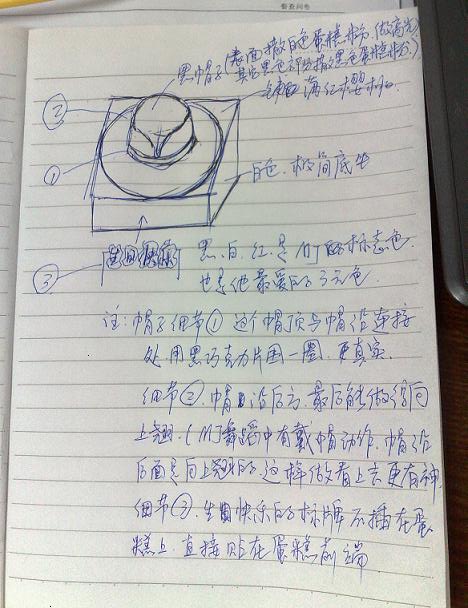 黑帽子(表面撒白色蛋糕粉,做高光,
其它黑色部分撒黑色蛋糕粉.)
铺满红樱桃.
②
①
白色.极简底坐
生日快乐
③
黑.白.红.是MJ的标志色.
也是他最爱的三元色.
注:帽子细节①这个帽顶与帽沿连接
处.用黑巧克力片围一圈.更真实.
细节②.帽沿后方.最后能做得向
上翘.(MJ舞蹈中有戴帽动作.帽沿
后面是向上翘的.这样做看上去更有神.
细节③.生日快乐的标牌不插在蛋
糕上.直接贴在蛋糕前端